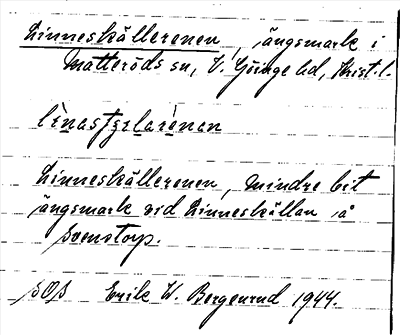 Linneskällerenen, ängsmark i
Matteröds sn, V. Göinge hd, Krist. l.
Linneskällerenen, mindre bit
ängsmark vid Linneskällan å
Svenstorp.
SOS Erik W. Bergenrud 1944.